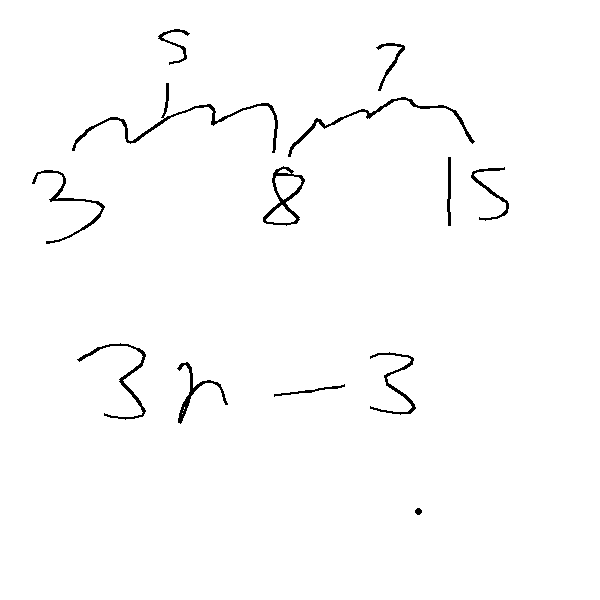 5 7
3 8 15
3n - 3